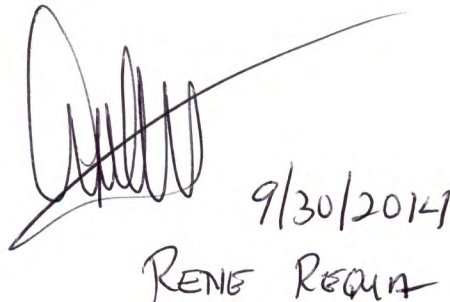 9/30/2014
RENE REQUIA